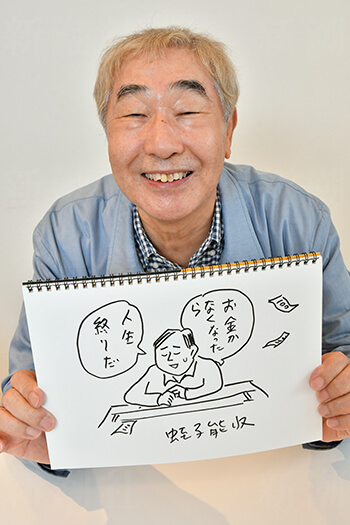 お金が
なくなった
ら
人生
終りだ
蛭子能収